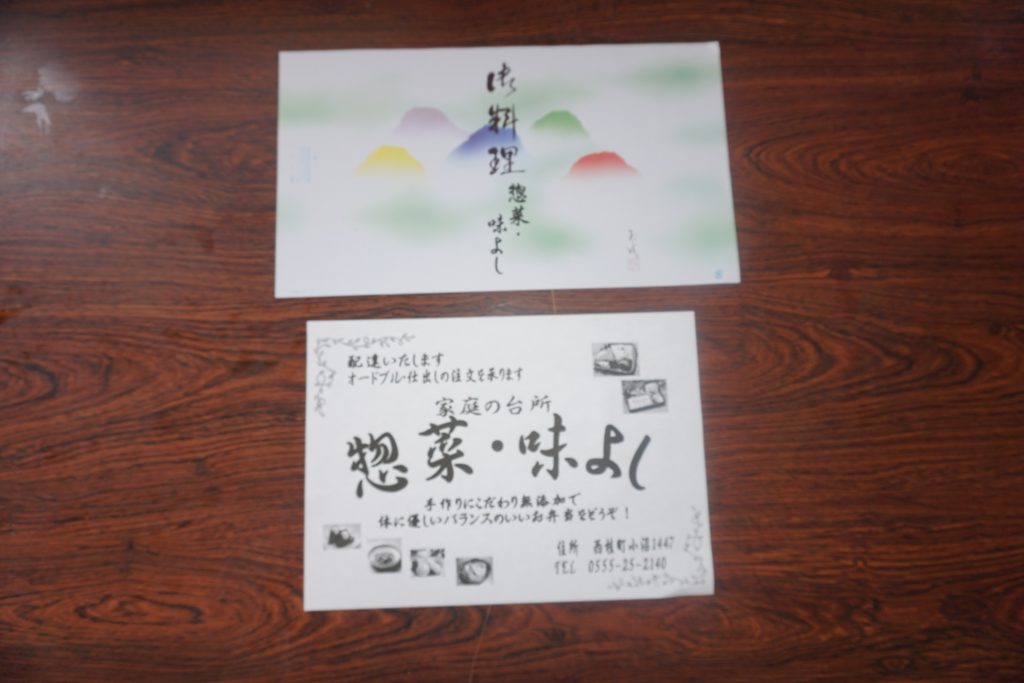 御料理
惣菜・
味よし
配達いたします
オードブル・仕出しの注文を承ります
家庭の台所
惣菜・味よし
手作りにこだわり無添加で
体に優しいバランスのいいお弁当をどうぞ!
住所 西桂町小沼1447
TEL 0555-25-2140